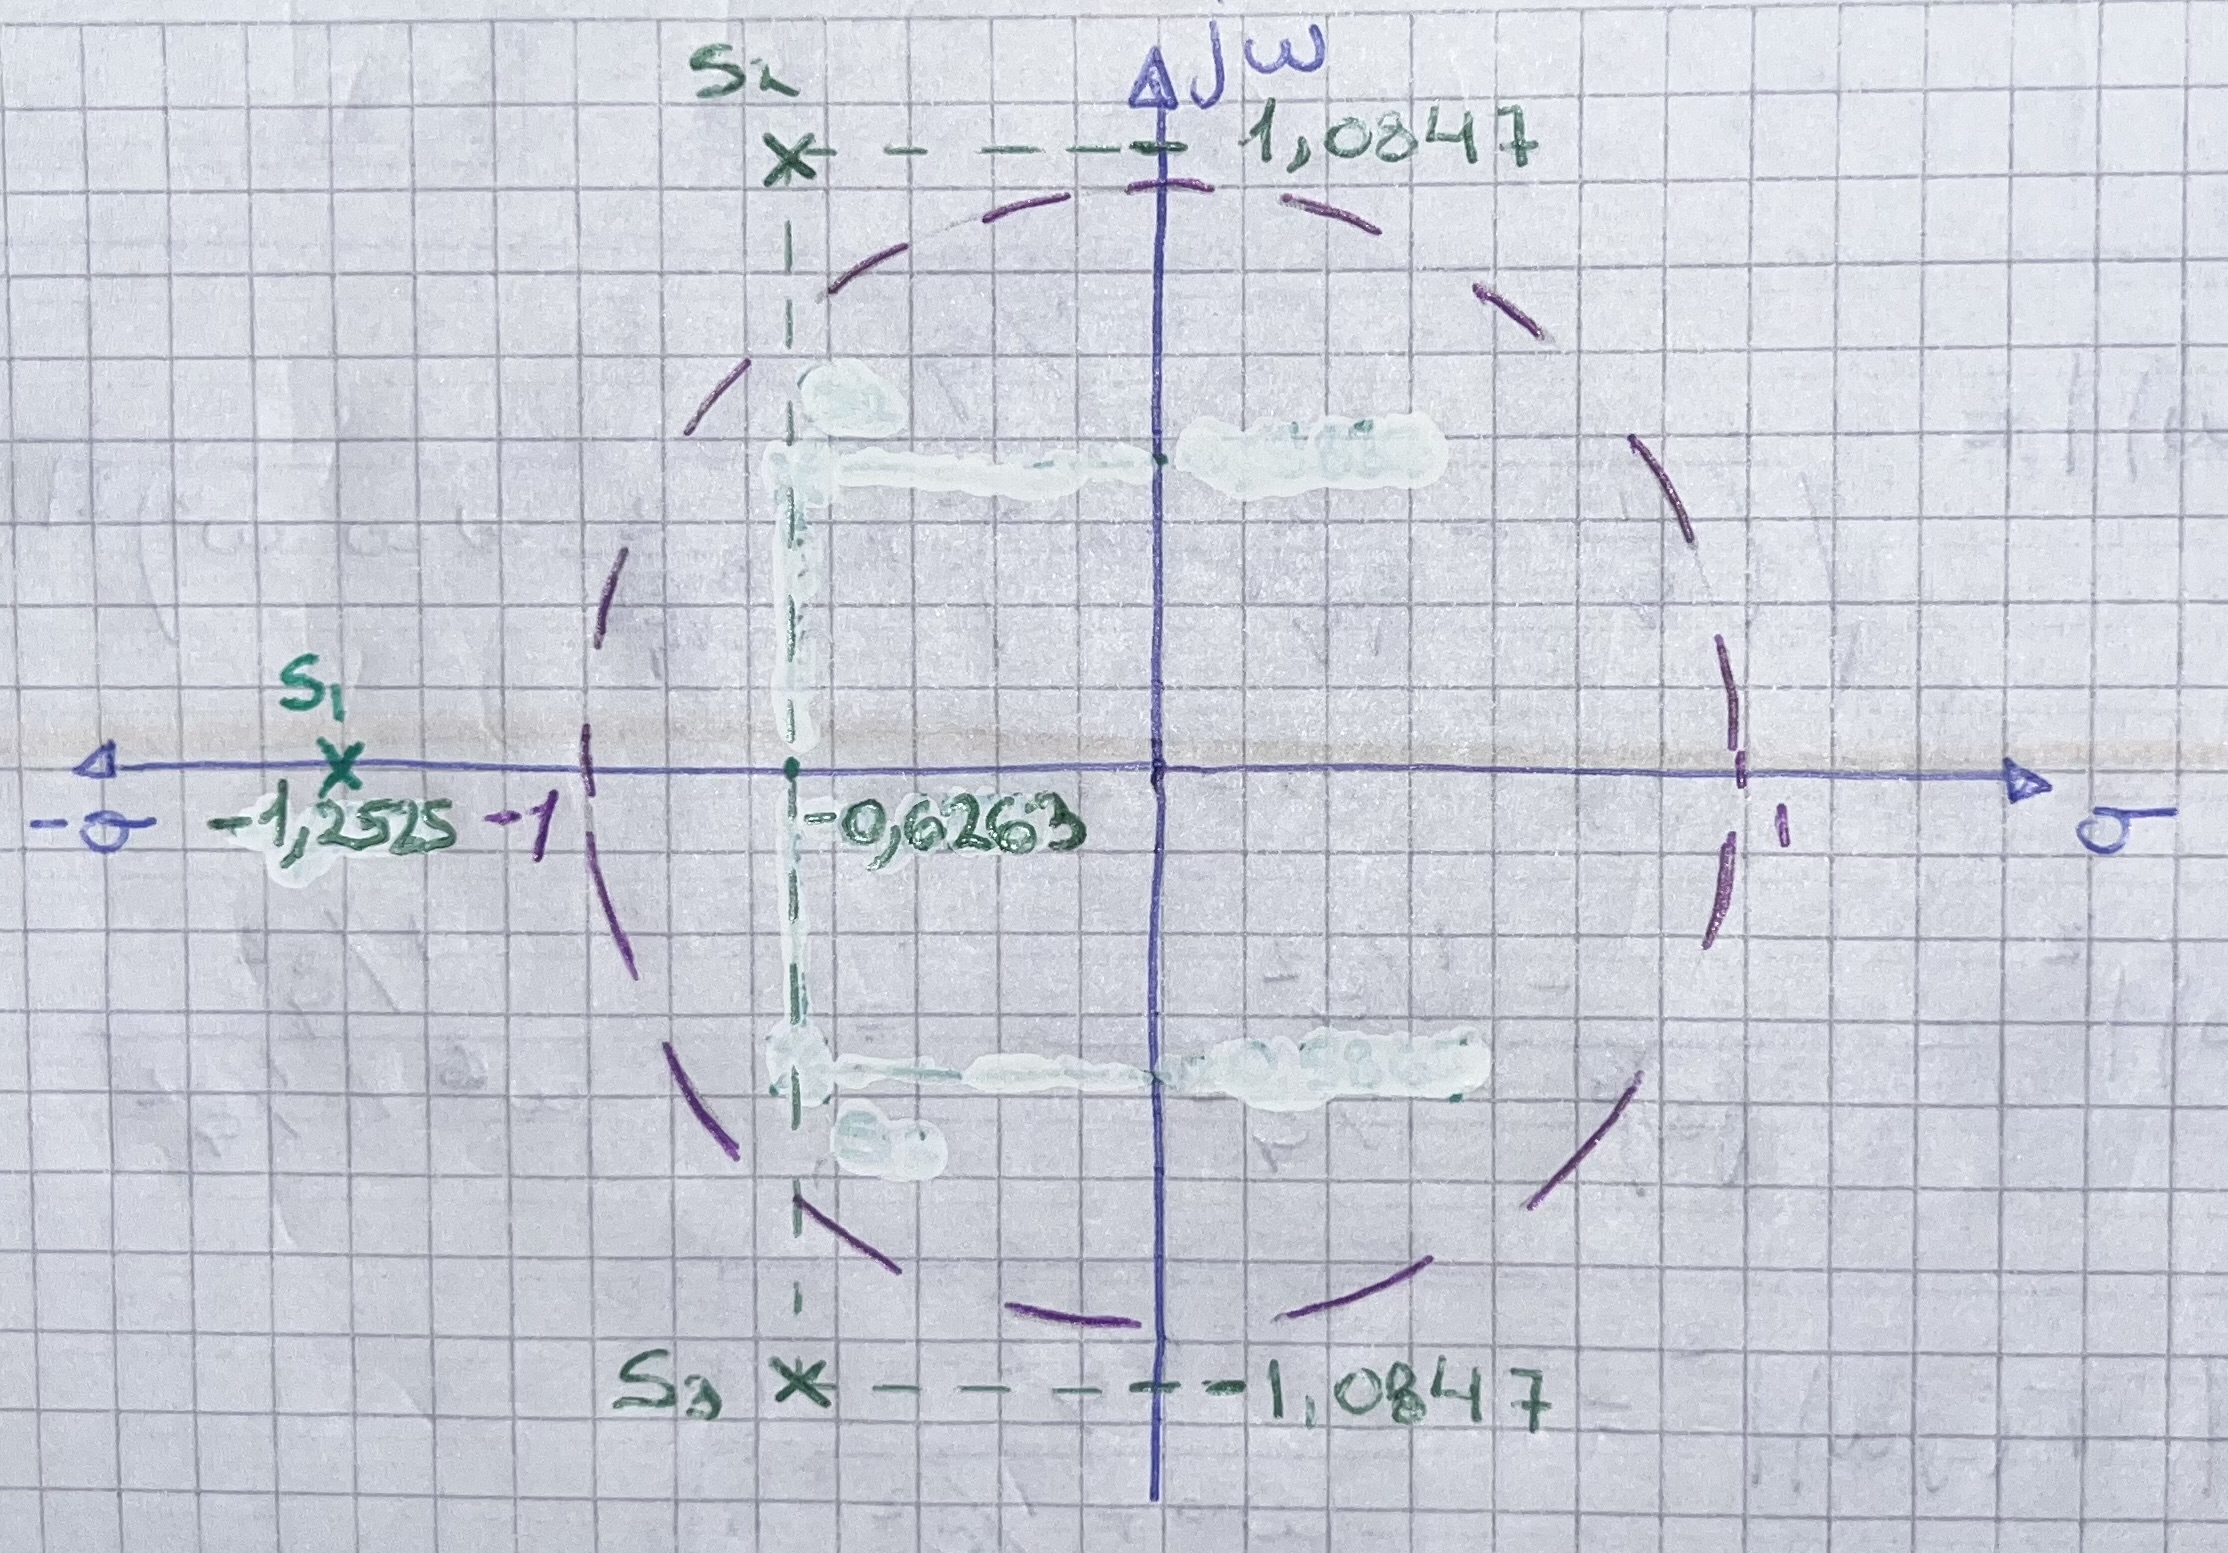 S2
jω
1,0847
S1
-σ
-1,2525
-1
-0,6263
1
σ
S3
-1,0847